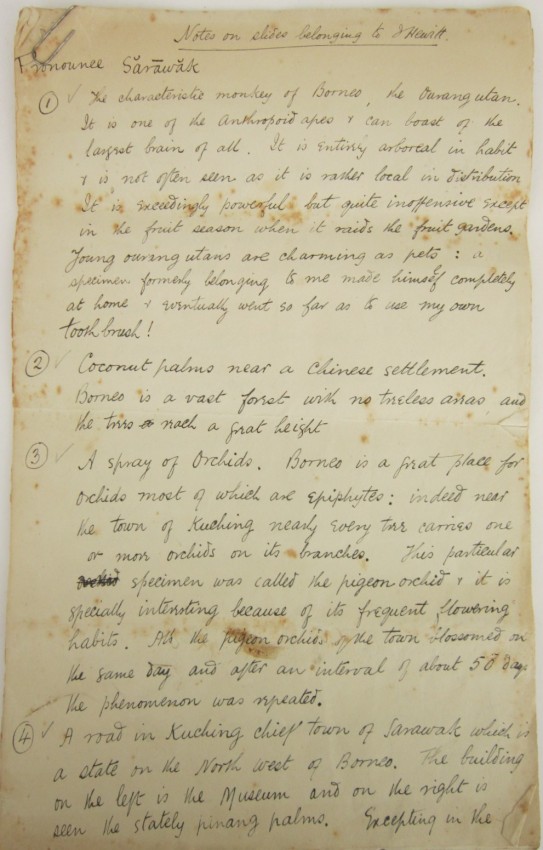 Notes on slides belonging to J Hewitt.
Pronounce Sărāwăk
① ✓ The characteristic monkey of Borneo, the Ourangutan.
It is one of the Anthropoid apes & can boast of the
largest brain of all. It is entirely arboreal in habit
& is not often seen as it is rather local in distribution
It is exceedingly powerful but quite inoffensive except
in the fruit season when it raids the fruit gardens.
Young ourangutans are charming as pets: a
specimen formerly belonging to me made himself completely
at home & eventually went so far as to use my own
toothbrush!
② ✓ Coconut palms near a Chinese settlement.
Borneo is a vast forest with no treeless areas and
the trees reach a great height
③ ✓ A spray of Orchids. Borneo is a great place for
orchids most of which are Epiphytes: indeed near
the town of Kuching nearly every tree carries one
or more orchids on its branches. This particular
specimen was called the pigeon orchid & it is
specially interesting because of its frequent flowering
habits. All the pigeon orchids the town blossomed on
the same day and after an interval of about 50 days
the phenomenon was repeated.
④ ✓ A road in Kuching chief town of Sarawak which is
a state on the North west of Borneo. The building
on the left is the Museum and on the right is
seen the stately pinang palms. Excepting in the